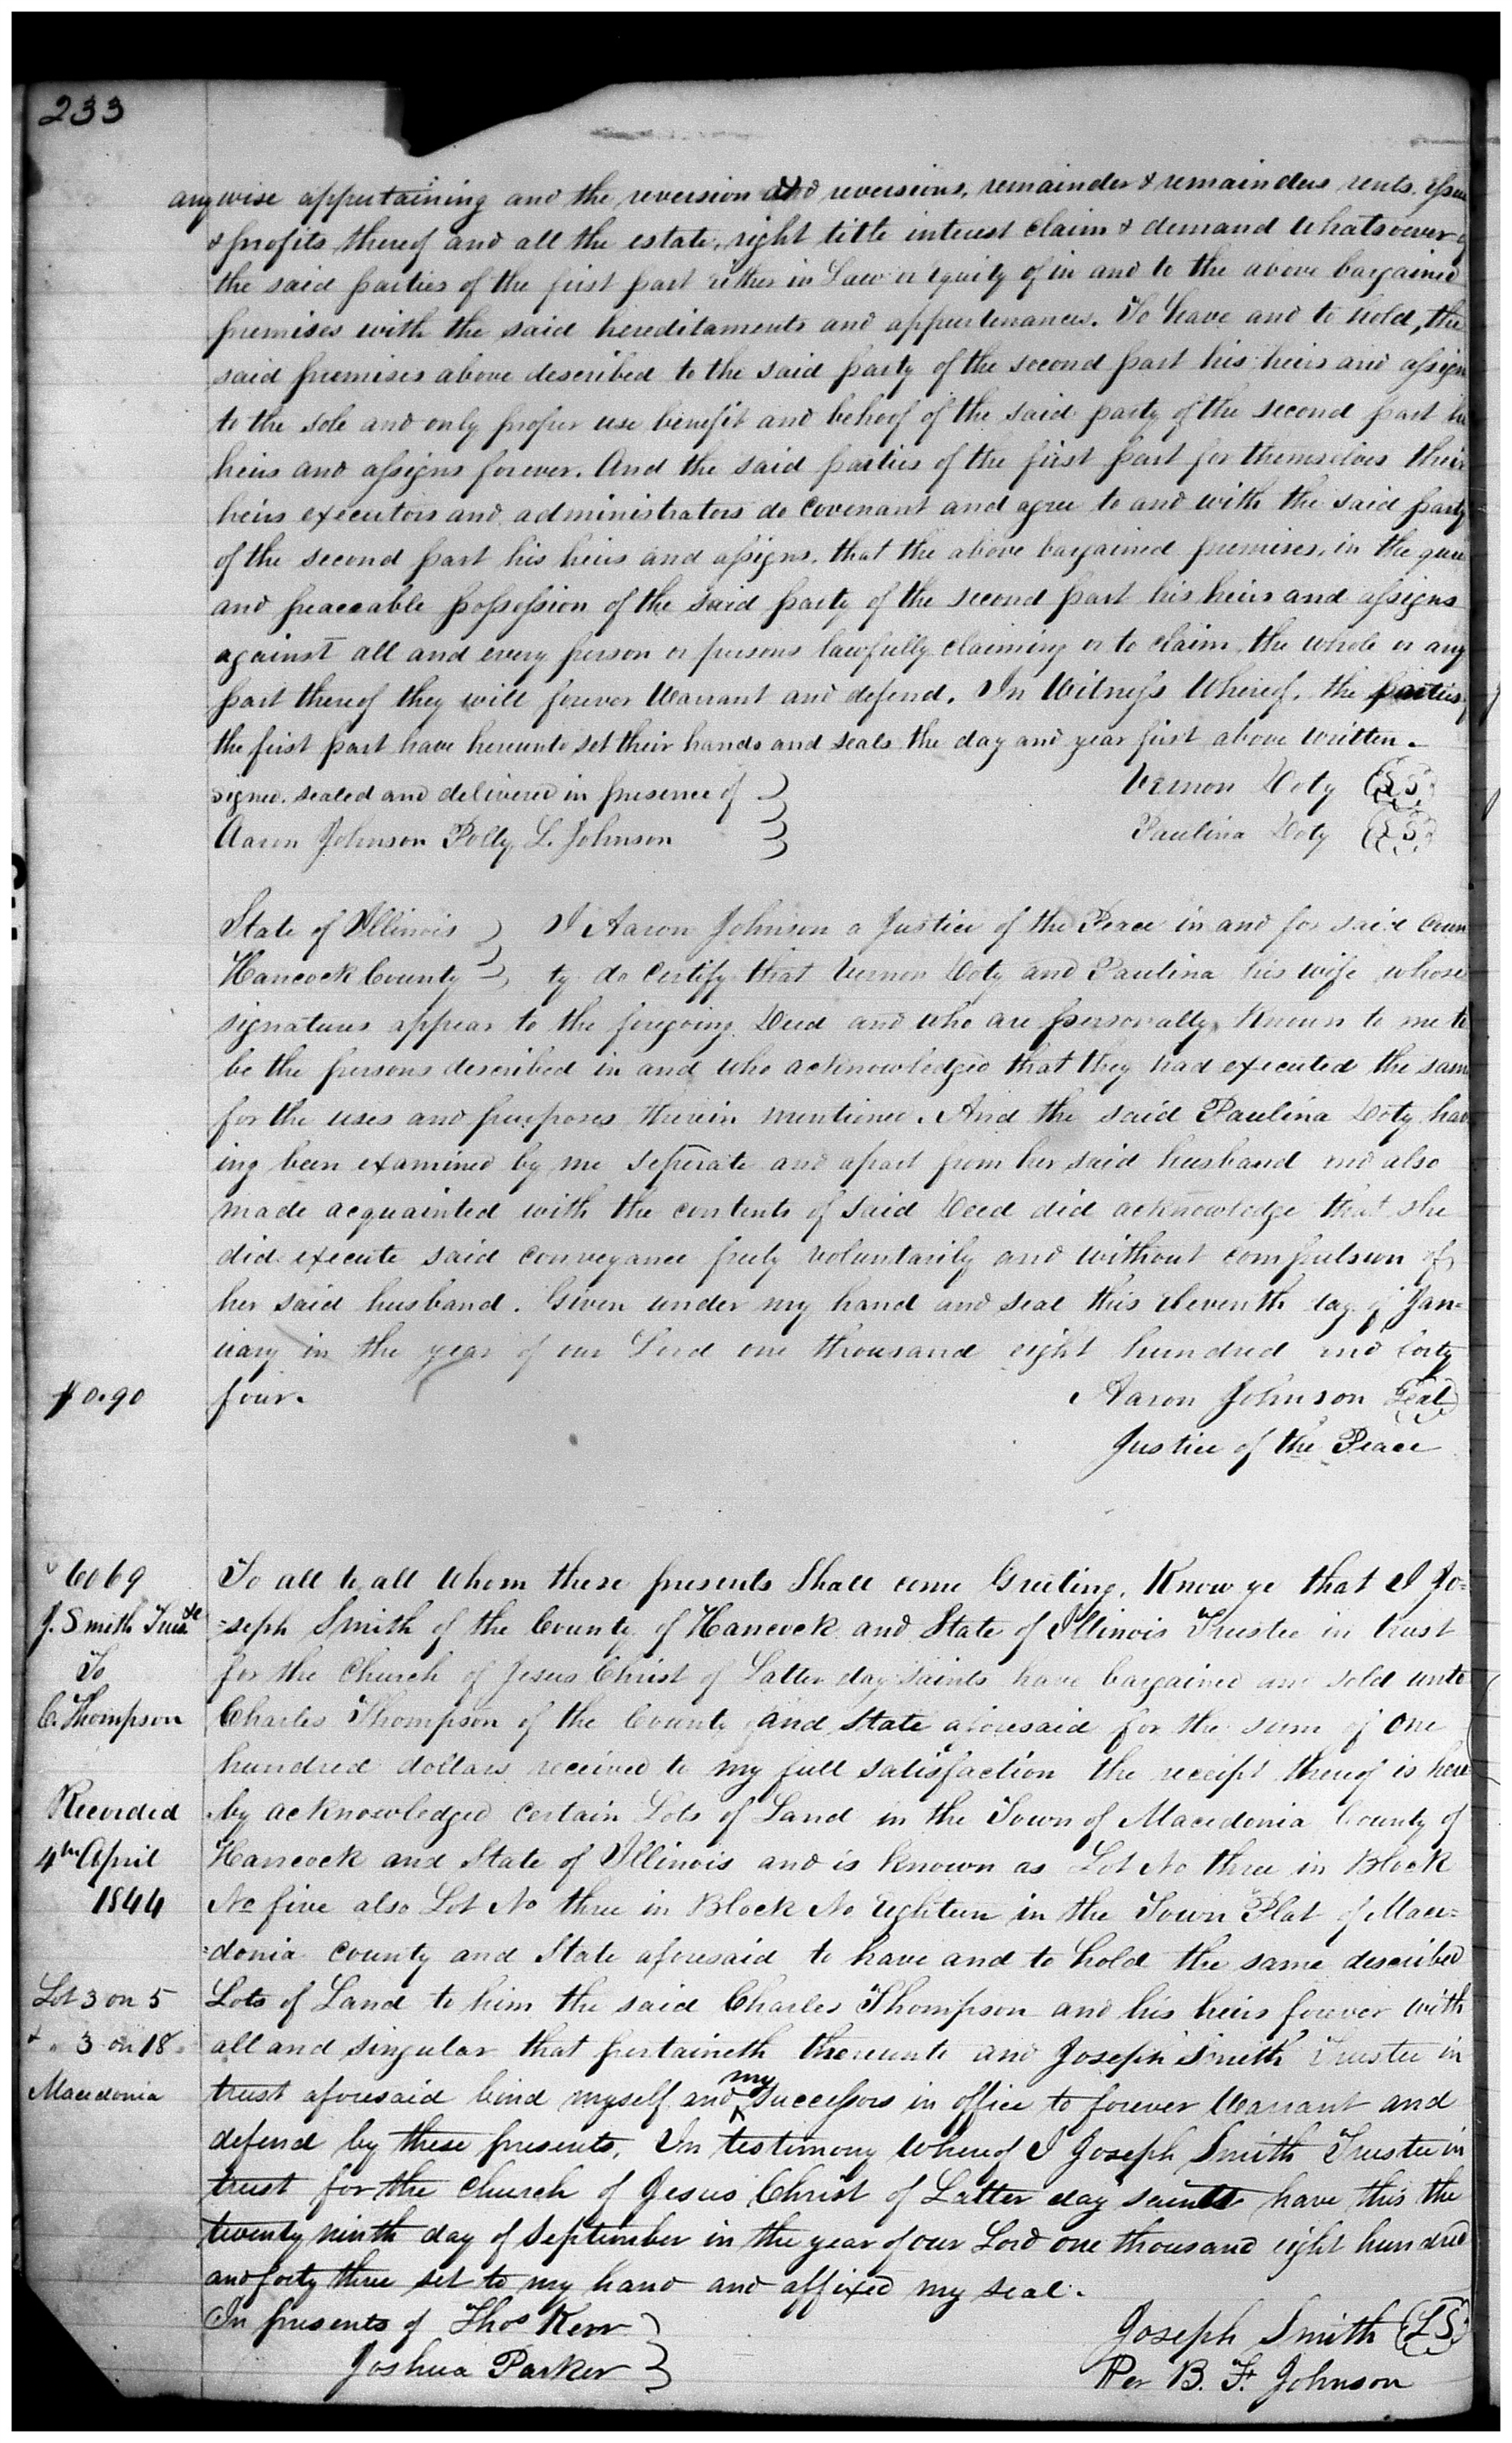 233
any wise appurtaining and the reversion and reversions, remainder & remainders rents. Issues
& profits thereof and all the estate, right title interest claim & demand whatsoever of
the said parties of the first part either in Law or equity of in and to the above bargained
premises with the said hereditaments and appurtenances. To have and to hold, the
said premises above described to the said party of the second part his heirs and assigns
to the sole and only proper use benefit and behoof of the said party of the second part his
heirs and assigns forever. And the said parties of the first part for themselves their
heirs executors and administrators do covenant and agree to and with the said party
of the second part his heirs and assigns. that the above bargained premises, in the quiet
and peaceable possession of the said party of the second part his heirs and assigns
against all and every person or persons lawfully claiming or to claim the whole or any
part thereof they will forever Warrant and defend. In Witness Whereof, the parties of
the first part have hereunto set their hands and seals the day and year first above written.
signed. sealed and delivered in presence of Vernon Doty (LS)
Aaron Johnson Polly L. Johnson Paulina Doty (LS)
State of Illinois I Aaron Johnson a Justice of the Peace in and for said coun
Hancock County ty do certify that Vernon Doty and Paulina his wife whose
signatures appear to the foregoing Deed and who are personally known to me to
be the persons described in and who acknowledged that they had executed the same
for the uses and purposes therein mentioned. And the said Paulina Doty hav
ing been examined by me seperate and apart from her said husband and also
made acquainted with the contents of said Deed did acknowledge that she
did execute said conveyance freely voluntarily and without compulsion of
her said husband. Given under my hand and seal this eleventh day of Jan=
uary in the year of our Lord one thousand eight hundred and forty
$0.90 four. Aaron Johnson Seal
Justice of the Peace
6069 To all to all whom these presents Shall come Greeting. Know ye that I Jo=
J. Smith Truste =seph Smith of the County of Hancock and State of Illinois Trustee in trust
To for the Church of Jesus Christ of Latter day Saints have bargained and sold unto
C. Thompson Charles Thompson of the County and State aforesaid for the sum of One
hundred dollars received to my full satisfaction the receipt thereof is here
Recorded by acknowledged certain Lots of Land in the Town of Macedonia County of
4th April Hancock and State of Illinois and is known as Lot No three in Block
1844 No five also Lot No three in Block No Eighteen in the Town Plat of Mace=
=donia county and State aforesaid to have and to hold the same described
Lot 3 on 5 Lots of Land to him the said Charles Thompson and his heirs forever with
& " 3 on 18 all and singular that pertaineth thereunto and Joseph Smith Trustee in
Macedonia trust aforesaid bind myself and my successors in office to forever Warrant and
defend by these presents. In testimony Whereof I Joseph Smith Trustee in
trust for the church of Jesus Christ of Latter day saints have this the
twenty ninth day of September in the year of our Lord one thousand eight hundred
and forty three set to my hand and affixed my seal.
In presents of Thos Kerr Joseph Smith (LS)
Joshua Parker Per B. F. Johnson